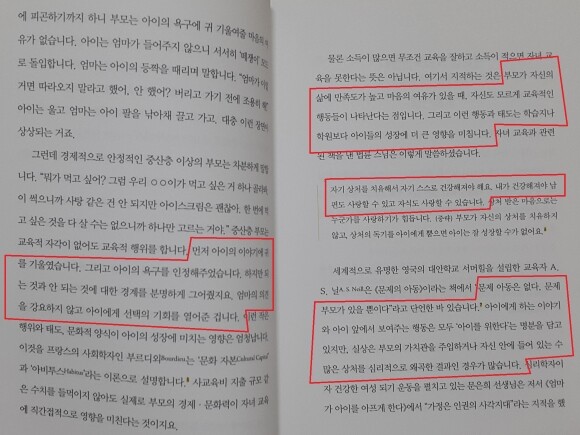 에 피곤하기까지 하니 부모는 아이의 욕구에 귀 기울여줄 마음의 여
유가 없습니다. 아이는 엄마가 들어주지 않으니 서서히 '떼쟁이' 모드
로 돌입합니다. 엄마는 아이의 등짝을 때리며 말합니다. "엄마가
거면 따라오지 말라고 했어, 안 했어? 버리고 가기 전에 조용히 해
아이는 울고 엄마는 아이 팔을 낚아채 끌고 가고, 대충 이런 장면이
상상되는 거죠.
그런데 경제적으로 안정적인 중산층 이상의 부모는 차분하게 말합
니다. "뭐가 먹고 싶어? 그럼 우리 ○○이가 먹고 싶은 거 하나 골라봐.
이 썩으니까 사탕 같은 건 안 되지만 아이스크림은 괜찮아. 한 번에 먹
고 싶은 것을 다 살 수는 없으니까 하나만 고르는 거야." 중산층 부모는
교육적 자각이 없어도 교육적 행위를 합니다. 먼저 아이의 이야기에 귀
를 기울였습니다. 그리고 아이의 욕구를 인정해주었습니다. 하지만 되
는 것과 안 되는 것에 대한 경계를 분명하게 그어줬지요. 엄마의 의견
을 강요하지 않고 아이에게 선택의 기회를 열어준 겁니다. 이런 작은
행위와 태도, 문화적 양식이 아이의 성장에 미치는 영향은 엄청납니다.
이것을 프랑스의 사회학자인 부르디외Bourdieu는 '문화 자본Cultural Capital'
과 '아비투스Habitus'라는 이론으로 설명합니다.⁴ 사교육비 지출 규모 같
은 수치를 들먹이지 않아도 실제로 부모의 경제·문화력이 자녀 교육
에 직간접적으로 영향을 미친다는 것이지요.
물론 소득이 많으면 무조건 교육을 잘하고 소득이 적으면 자녀 교
육을 못한다는 뜻은 아닙니다. 여기서 지적하는 것은 부모가 자신의
삶에 만족도가 높고 마음의 여유가 있을 때, 자신도 모르게 교육적인
행동들이 나타난다는 점입니다. 그리고 이런 행동과 태도는 학습지나
학원보다 아이들의 성장에 더 큰 영향을 미칩니다. 자녀 교육과 관련
된 책을 낸 법륜 스님은 이렇게 말씀하셨습니다.
자기 상처를 치유해서 자기 스스로 건강해져야 해요. 내가 건강해져야 남
편도 사랑할 수 있고 자식도 사랑할 수 있습니다. 상처 받은 마음으로는
누군가를 사랑하기가 힘듭니다. (중략) 부모가 자신의 상처를 치유하지
않고, 상처의 독기를 아이에게 뿜으면 아이는 잘 성장할 수가 없어요.⁵
세계적으로 유명한 영국의 대안학교 서머힐을 설립한 교육자 A.
S. 닐A.S Neill은 《문제의 아동》이라는 책에서 "문제 아동은 없다. 문제
부모가 있을 뿐이다"라고 단언한 바 있습니다.⁶ 아이에게 하는 이야기
와 아이 앞에서 보여주는 행동은 모두 '아이를 위한다'는 명분을 담고
있지만, 실상은 부모의 가치관을 주입하거나 자신 안에 들어 있는 수
많은 상처를 심리적으로 왜곡한 결과인 경우가 많습니다. 심리학자이
자 건강한 여성 되기 운동을 펼치고 있는 문은희 선생님은 저서 《엄마
가 아이를 아프게 한다》에서 "가정은 인권의 사각지대"라는 지적을 했